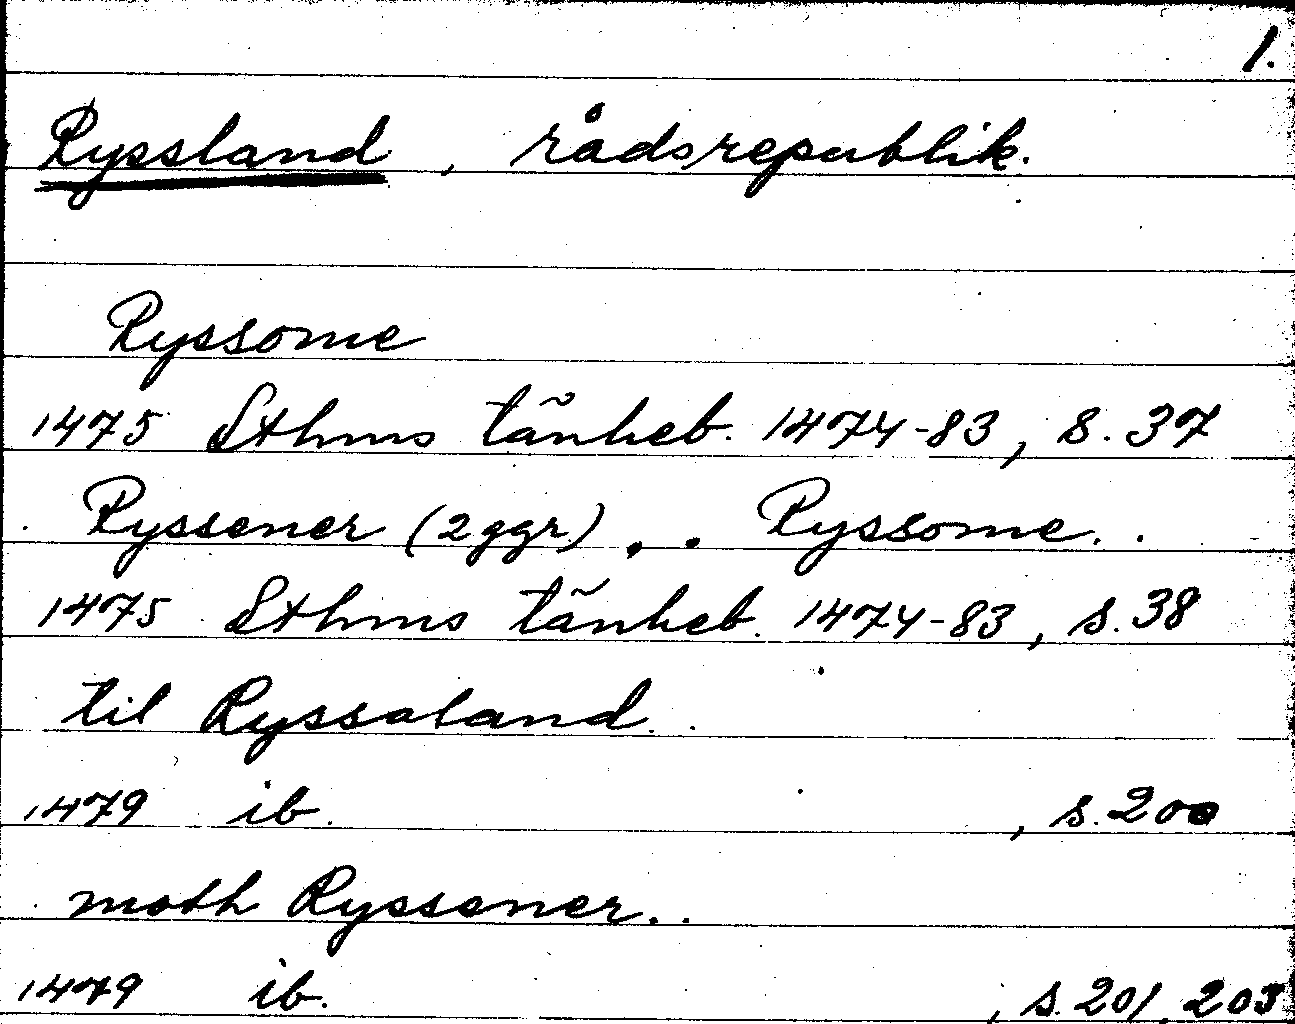 1.
Ryssland, rådsrepublik.
Ryssome
1475 Sthms tänkeb. 1474-83, s. 37
Ryssener (2 ggr) . . Ryssome. .
1475 Sthms tänkeb. 1474-83, s. 38
til Ryssaland. .
1479 ib. , s. 200
moth Ryssener. .
1479 ib. , s. 201, 203